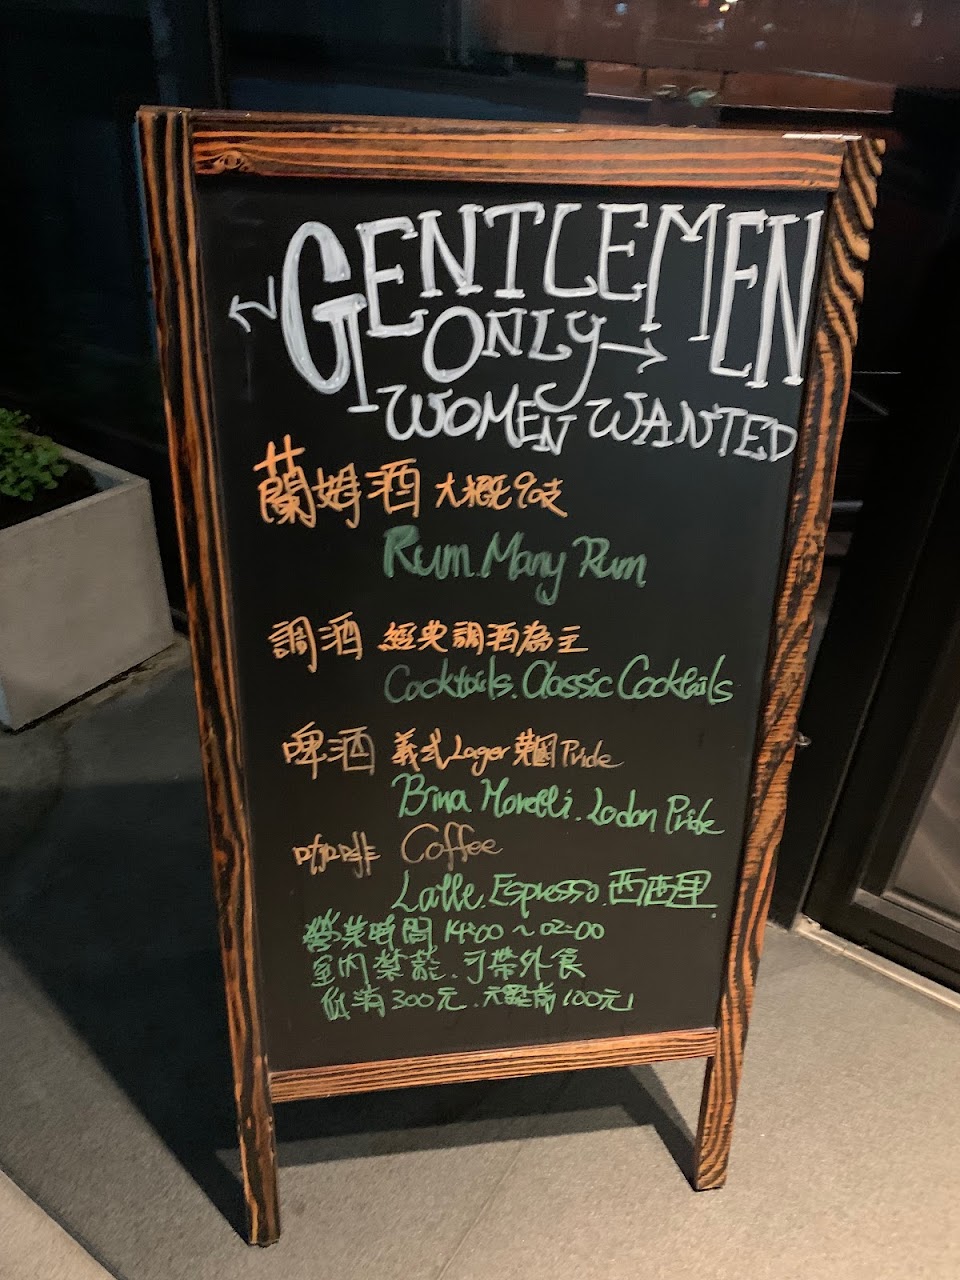 GENTLEMEN
ONLY
WOMEN WANTED
蘭姆酒 大概90支
Rum. Many Rum
調酒 經典調酒為主
Cocktails. Classic Cocktails
啤酒 義式Lager 英國Pride
Birra Morelli. Lodon Pride
咖啡 Coffee
Latte. Espresso. 西西里
營業時間 14:00～02:00
室內禁菸. 可帶外食
低消300元. 六點前100元